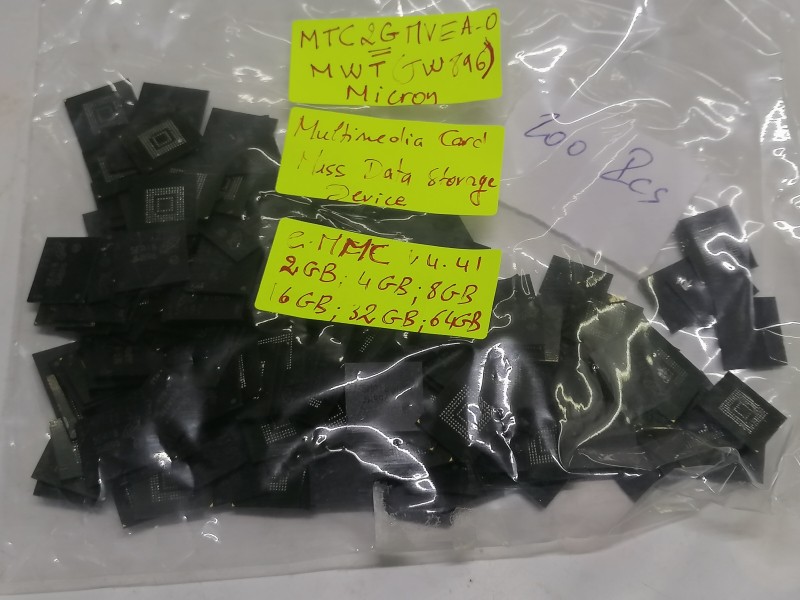 MTC2GMVEA-0
MWT (JW896)
Micron
Multimedia Card
Mass Data Storage
Device
e.MMC V4.41
2GB; 4GB; 8GB
16GB; 32GB; 64GB
200 Pcs